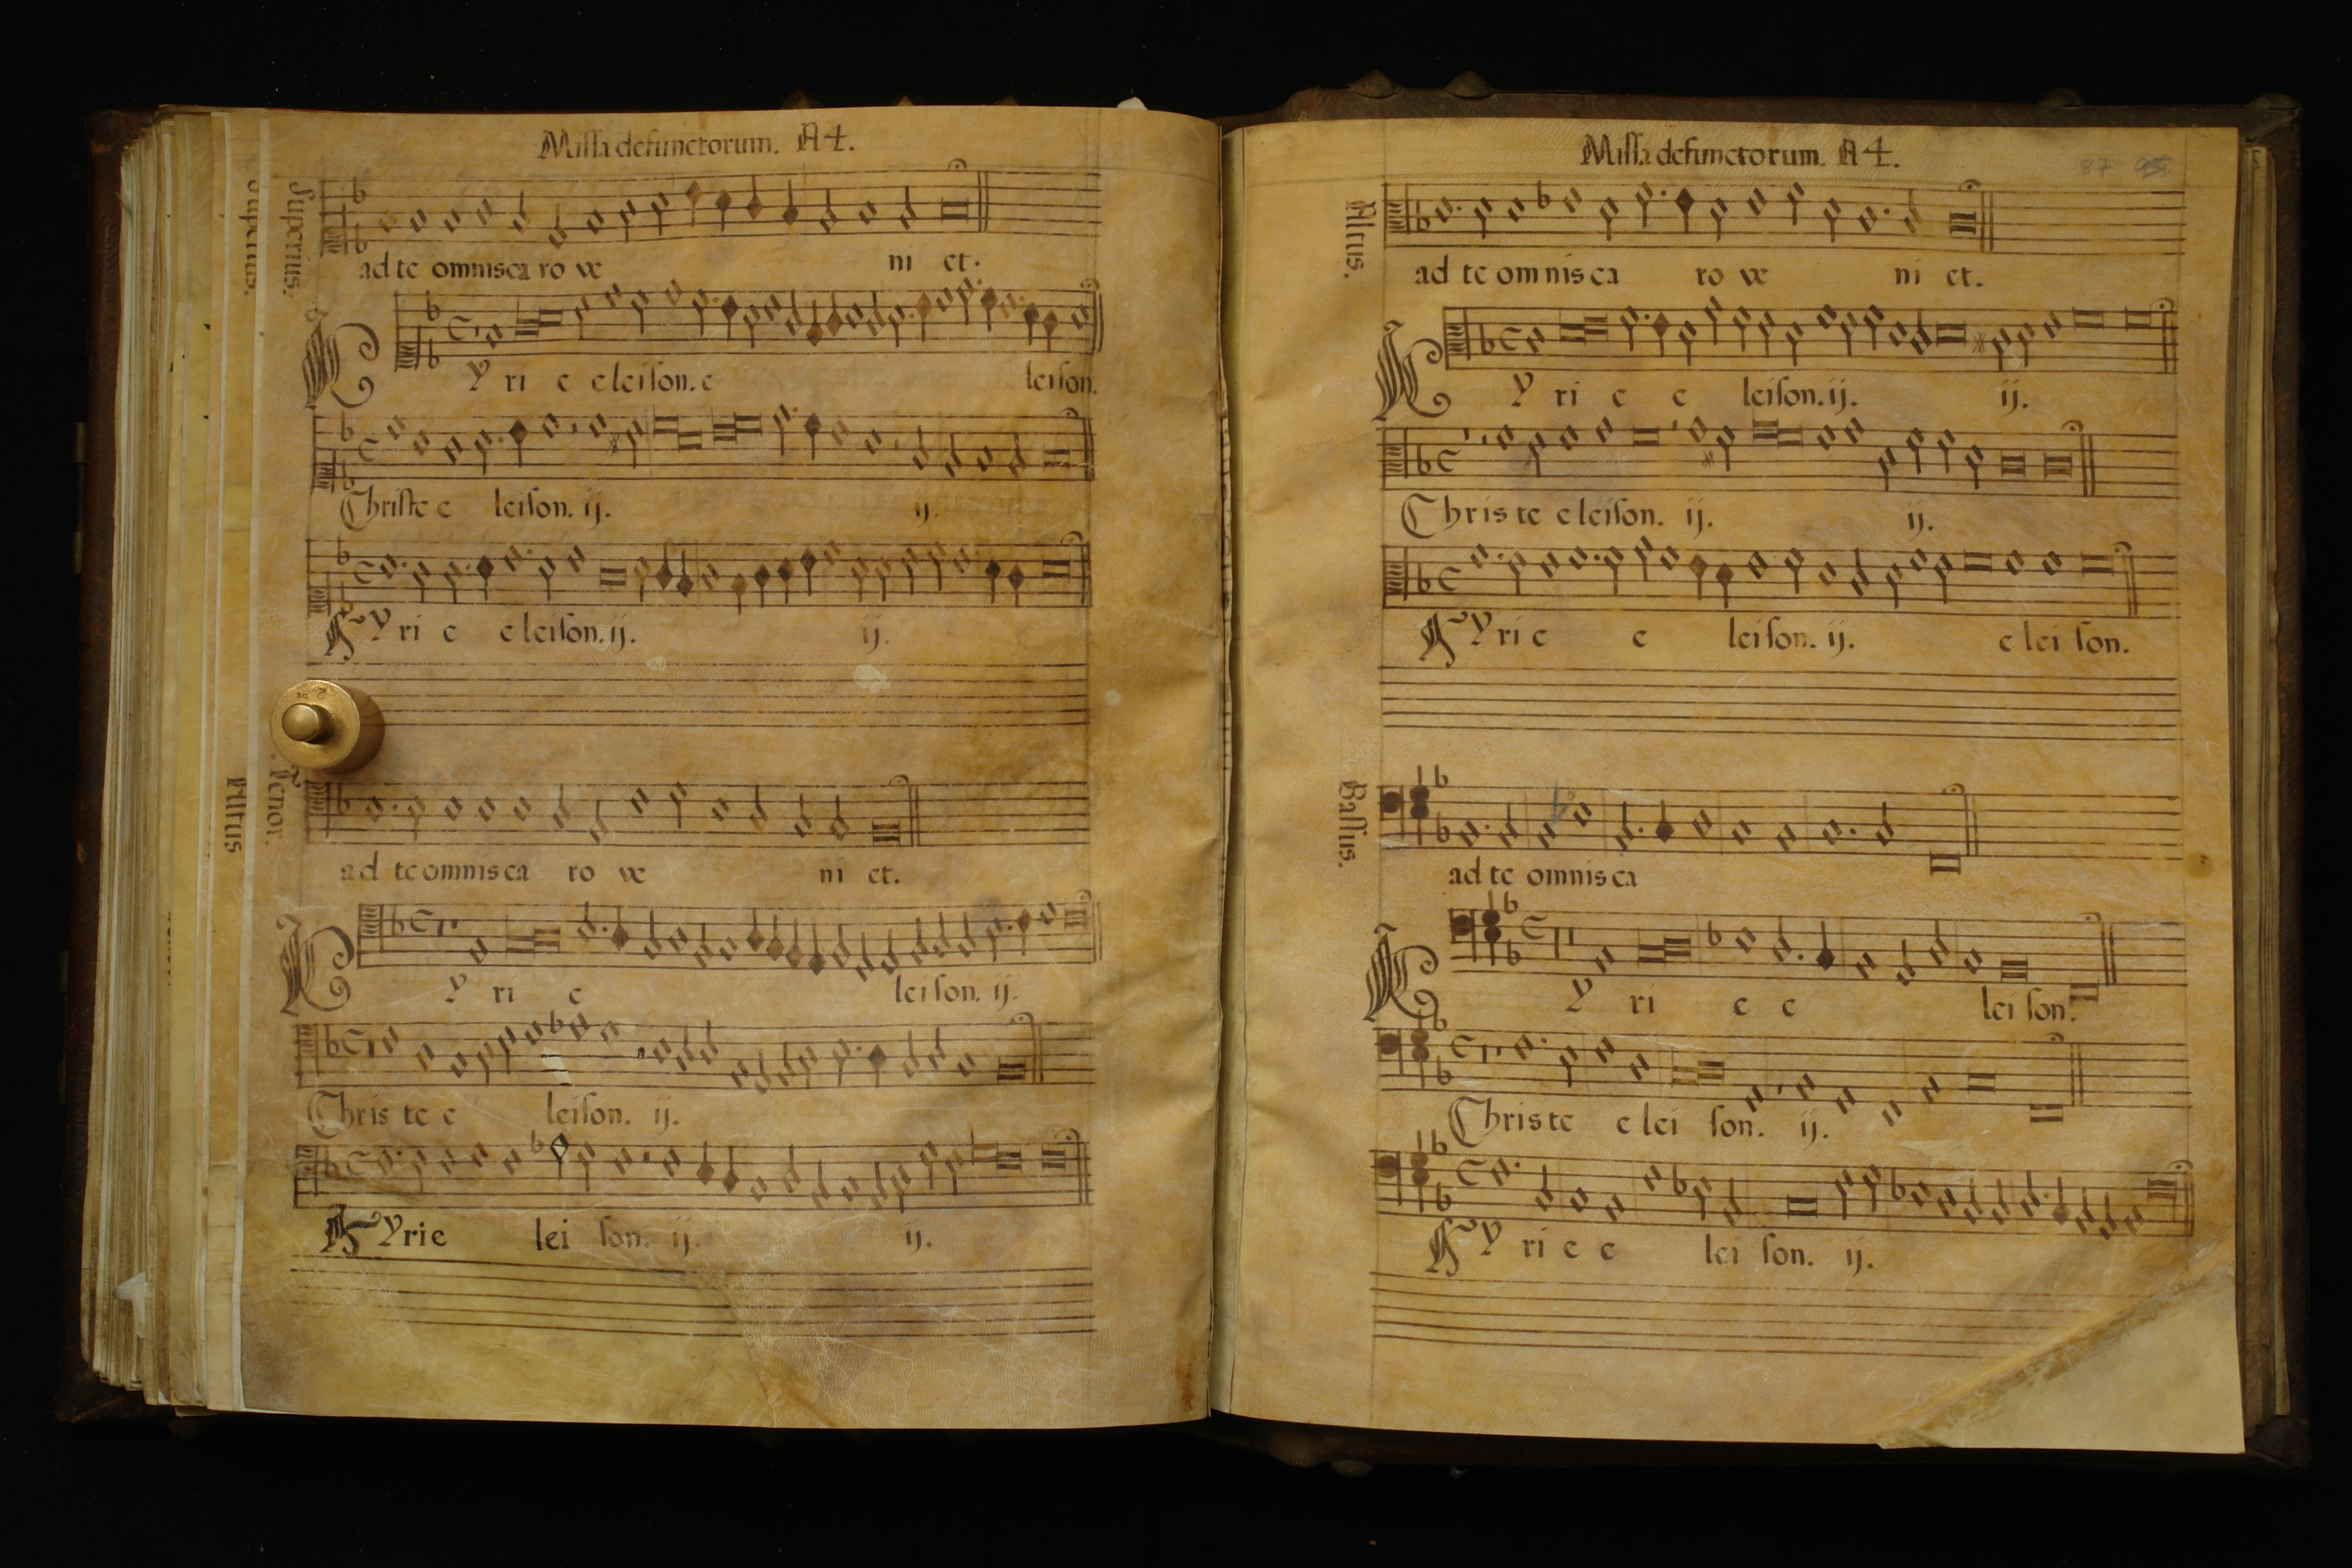 Missa defunctorum. A 4.
Superius.
Superius.
ad te omnis ca ro ve ni et.
KY ri e e leison. e leison.
Christe e leison. ij. ij.
KY ri e e leison. ij. ij.
Tenor.
Altus
ad te omnis ca ro ve ni et.
KY ri e leison. ij.
Chris te e leison. ij.
KYrie lei son. ij. ij.
Missa defunctorum. A 4.
87
Altus.
ad te om nis ca ro ve ni et.
KY ri e e leison. ij. ij.
Chris te e leison. ij. ij.
KY ri e e leison. ij. e lei son.
Bassus.
ad te omnis ca
KY ri e e lei son.
Chris te e lei son. ij.
KY ri e e lei son. ij.